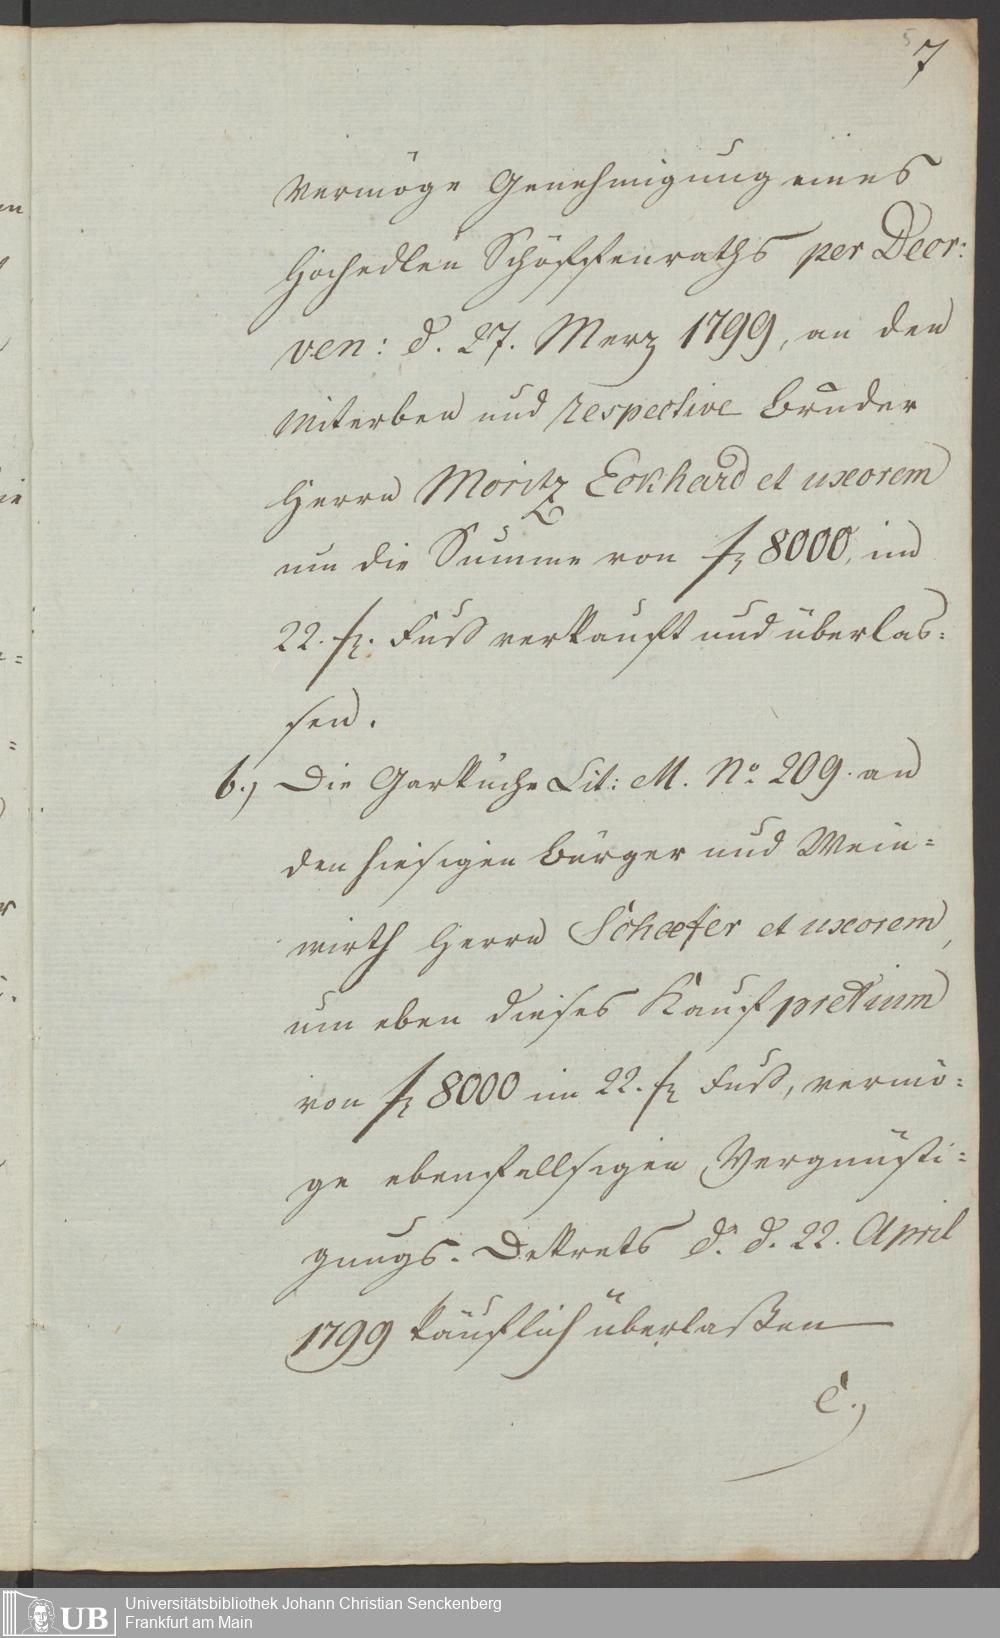 5
7
Vermöge Genehmigung eines
Hochedlen Schöffenraths per Decr:
ven: d. 27. Merz 1799, an den
Miterben und respective Bruder
Herrn Moritz Eckhard et uxorem
um die Summe von f 8000, im
22. f. Fuß verkauft und überlas=
sen.
b.) Die Garküche Lit: M. No. 209. an
den hiesigen Bürger und Wein=
wirth Herrn Schæfer et uxorem,
um eben dieses Kaufpretium
von f 8000 im 22. f Fuß, vermö=
ge ebenfallsigen Vergünsti=
gungs-Dekrets d. d. 22. April
1799 käuflich überlaßen
c.)
UB
Universitätsbibliothek Johann Christian Senckenberg
Frankfurt am Main